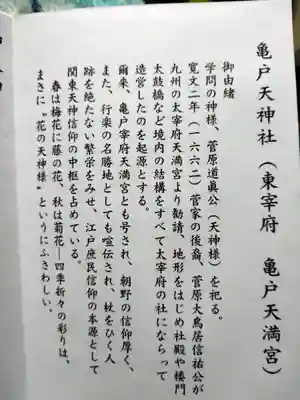 亀戸天神社(東宰府 亀戸天満宮)
御由緒
学問の神様、菅原道眞公(天神様)を祀る。
寛文二年(一六六二)菅家の後裔、菅原大鳥居信祐公が
九州の太宰府天満宮より勧請、地形をはじめ社殿や楼門
太鼓橋など境内の結構をすべて太宰府の社にならって
造営したのを起源とする。
爾来、亀戸宰府天満宮とも号され、朝野の信仰厚く、
また、行楽の名勝地としても喧伝され、杖をひく人
跡を絶たない繁栄をみせ、江戸庶民信仰の本源として
関東天神信仰の中枢を占めている。
春は梅花に藤の花、秋は菊花―四季折々の彩りは、
まさに〝花の天神様〟というにふさわしい。